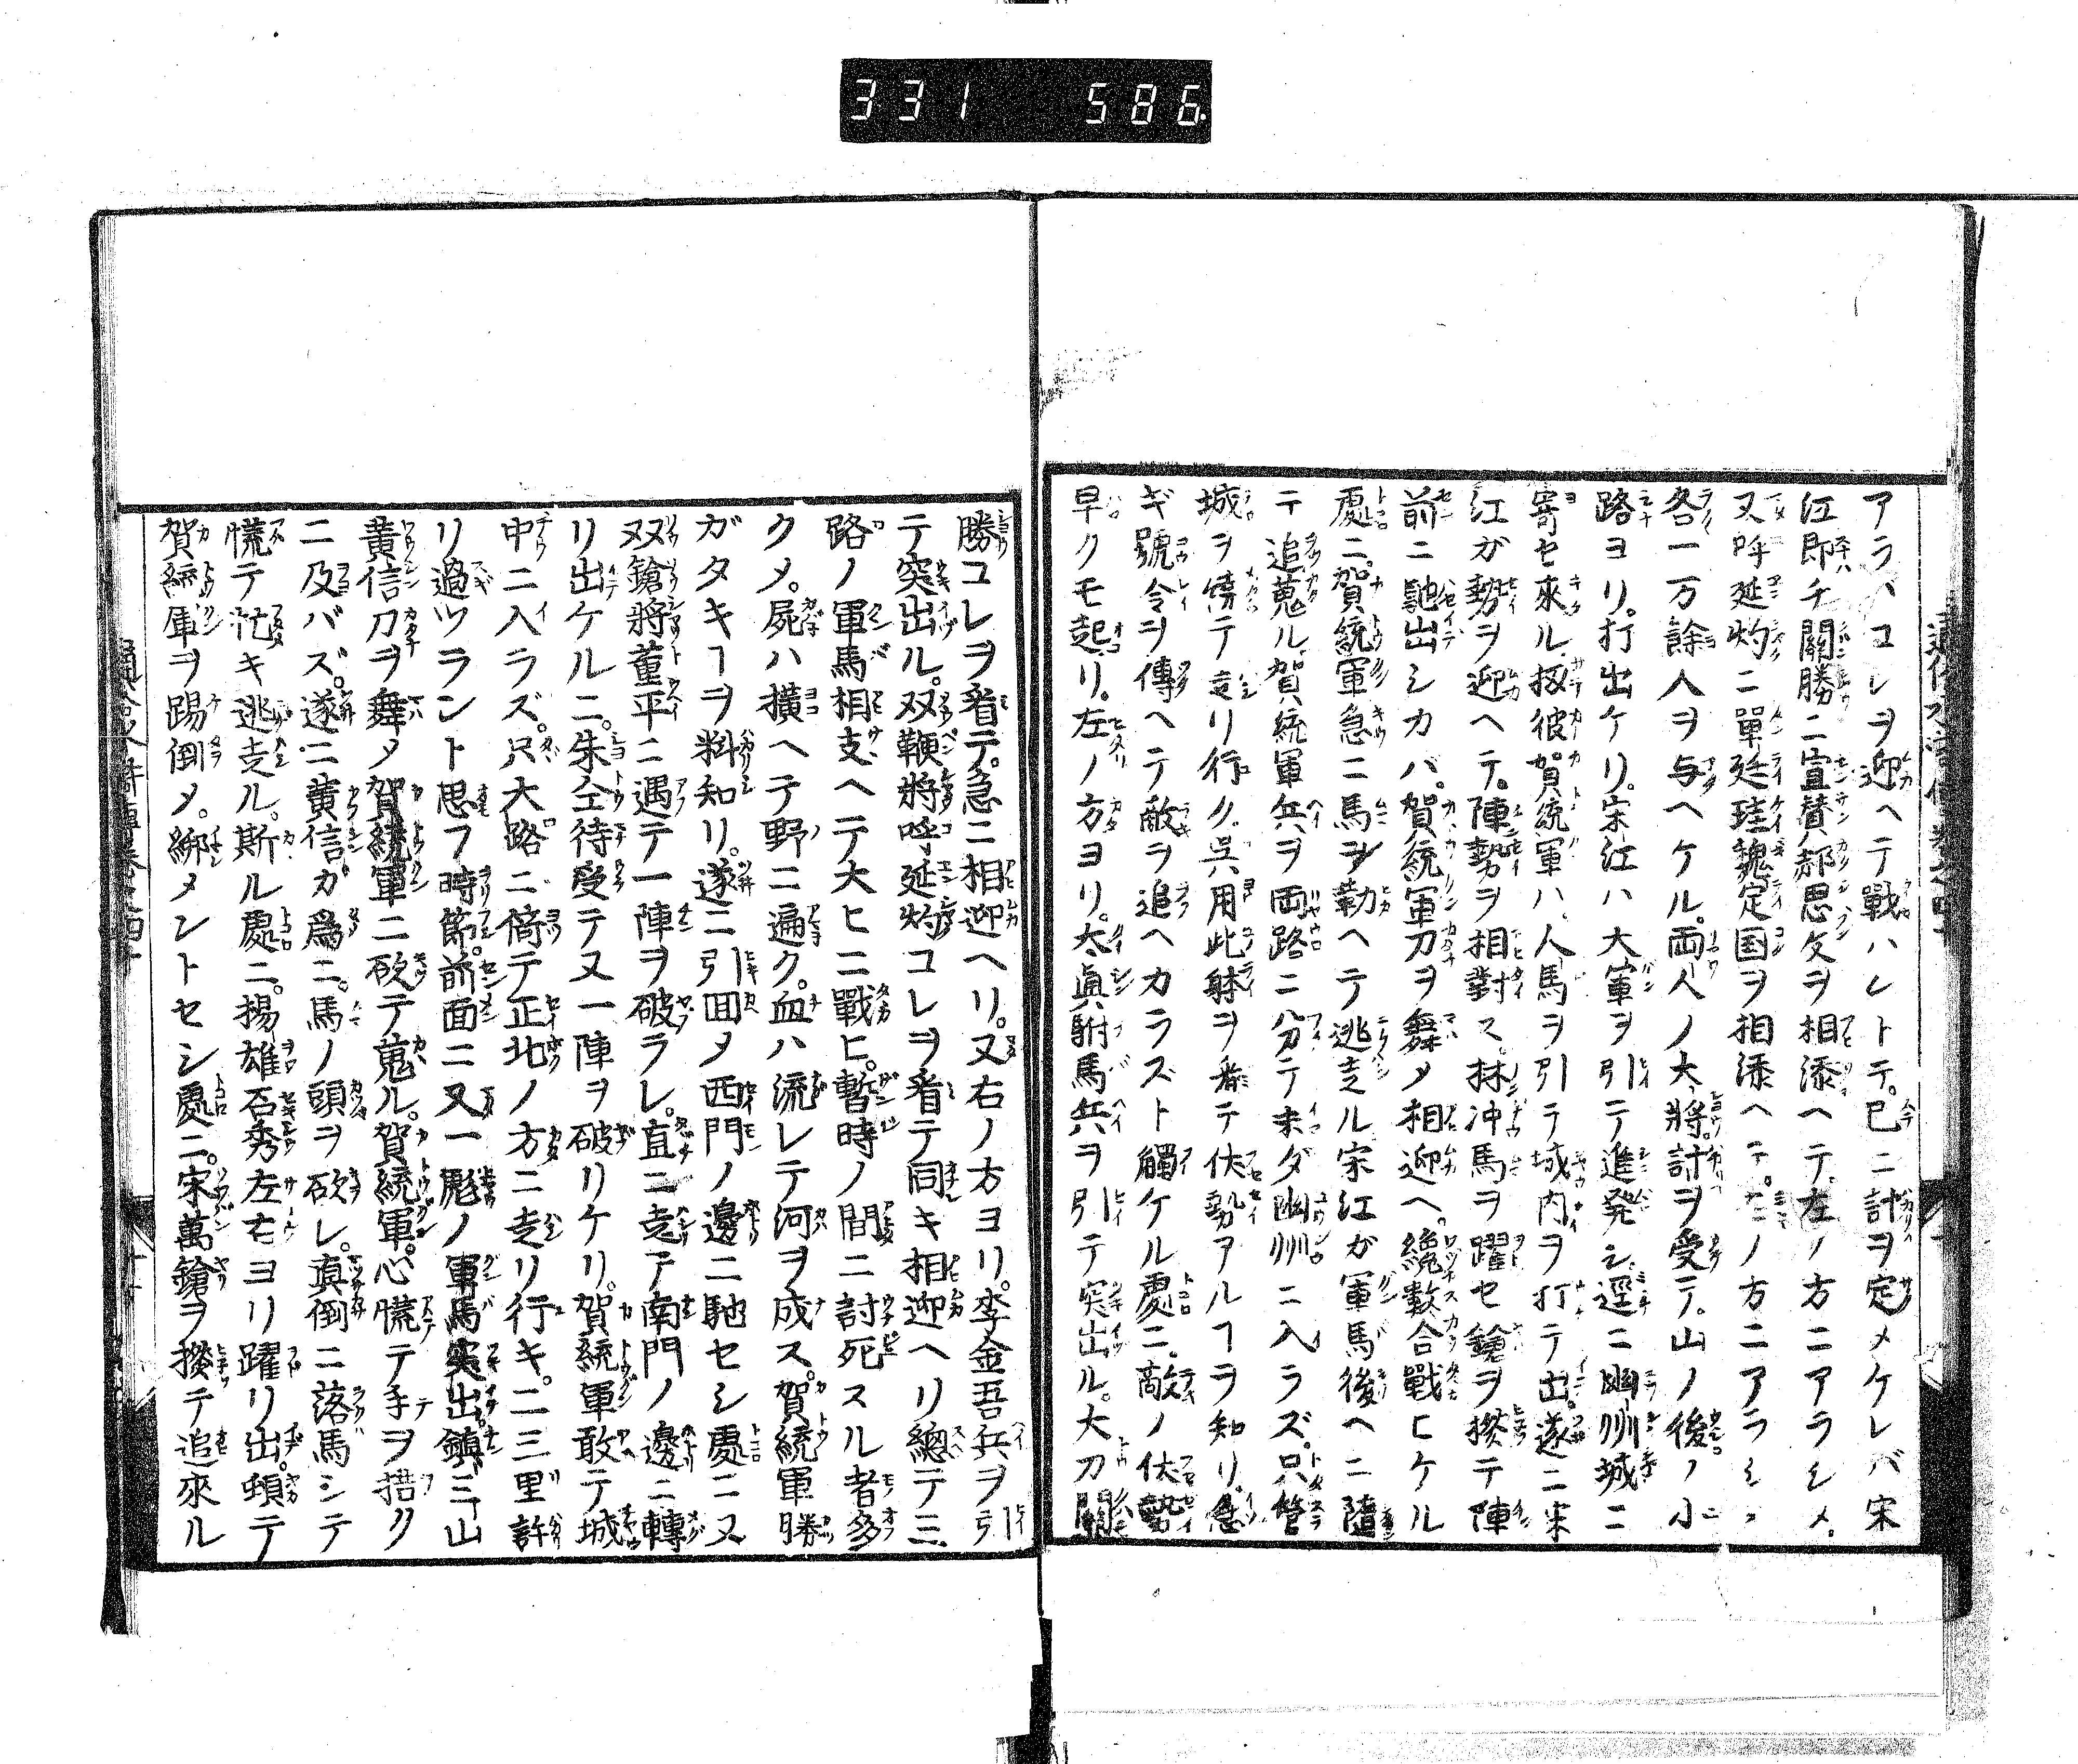 331 586
アラバコレヲ迎ヘテ戰ハントテ。已ニ計ヲ定メケレバ宋
江即チ關勝ニ宣賛郝思文ヲ相添ヘテ。左ノ方ニアラシメ。
又呼延灼ニ單廷珪魏定国ヲ相添ヘテ。右ノ方ニアラシメ
各一万餘人ヲ与ヘケル。両人ノ大將。計ヲ受テ。山ノ後ノ小
路ヨリ。打出ケリ。宋江ハ大軍ヲ引テ進発シ。逕ニ幽州城ニ
寄セ來ル。扨彼賀統軍ハ。人馬ヲ引テ城内ヲ打テ出。遂ニ宋
江ガ勢ヲ迎ヘテ。陣勢ヲ相對ス。林冲馬ヲ躍セ鎗ヲ撚テ陣
前ニ馳出シカバ。賀統軍刀ヲ舞メ相迎ヘ。纔數合戰ヒケル
處ニ。賀統軍急ニ馬ヲ勒ヘテ逃走ル宋江ガ軍馬後ヘニ隨
テ追蒐ル。賀統軍兵ヲ両路ニ分テ未ダ幽州ニ入ラズ。只管
城ヲ繞テ走リ行ク。呉用此躰ヲ看テ伏勢アルヿヲ知リ。急
ギ號令ヲ傳ヘテ敵ヲ追ヘカラズト觸ケル處ニ。敵ノ伏勢
早クモ起リ。左ノ方ヨリ。太眞駙馬兵ヲ引テ突出ル。大刀關
勝コレヲ看テ。急ニ相迎ヘリ。又右ノ方ヨリ。李金吾兵ヲ引
テ突出ル。双鞭將呼延灼コレヲ看テ同キ相迎ヘリ總テ三
路ノ軍馬相支ヘテ大ヒニ戰ヒ。暫時ノ間ニ討死スル者多
クメ。屍ハ横ヘテ野ニ遍ク。血ハ流レテ河ヲ成ス。賀統軍勝
ガタキヿヲ料知リ。遂ニ引囬メ西門ノ邊ニ馳セシ處ニ又
双鎗將董平ニ遇テ一陣ヲ破ラレ。直ニ走テ南門ノ邊ニ轉
リ出ケルニ。朱仝待受テ又一陣ヲ破リケリ。賀統軍敢テ城
中ニ入ラズ。只大路ニ倚テ正北ノ方ニ走リ行キ。二三里許
リ過ツラント思フ時節。前面ニ又一彪ノ軍馬突出。鎮三山
黄信刀ヲ舞メ賀統軍ニ砍テ蒐ル。賀統軍。心慌テ手ヲ措ク
ニ及バズ。遂ニ黄信ガ爲ニ。馬ノ頭ヲ砍レ。眞倒ニ落馬シテ
慌テ忙キ逃走ル。斯ル處ニ。楊雄石秀左右ヨリ躍リ出。頓テ
賀統軍ヲ踢倒メ。綁メントセシ處ニ。宋萬鎗ヲ撚テ追來ル